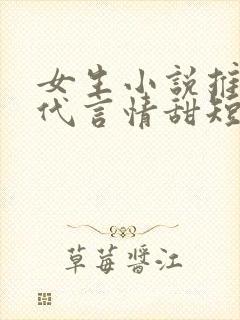 女生小說推
代言情甜短
草莓醬江